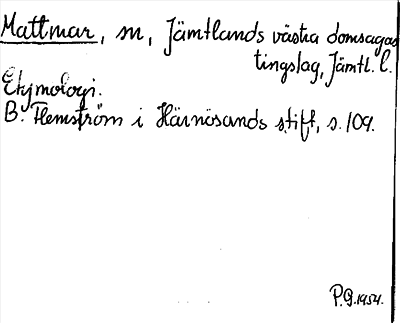 Mattmar, sn, Jämtlands västra domsagas
tingslag, Jämtl. l.
Etymologi.
B. Flemström i Härnösands stift, s. 109.
P.G. 1954.